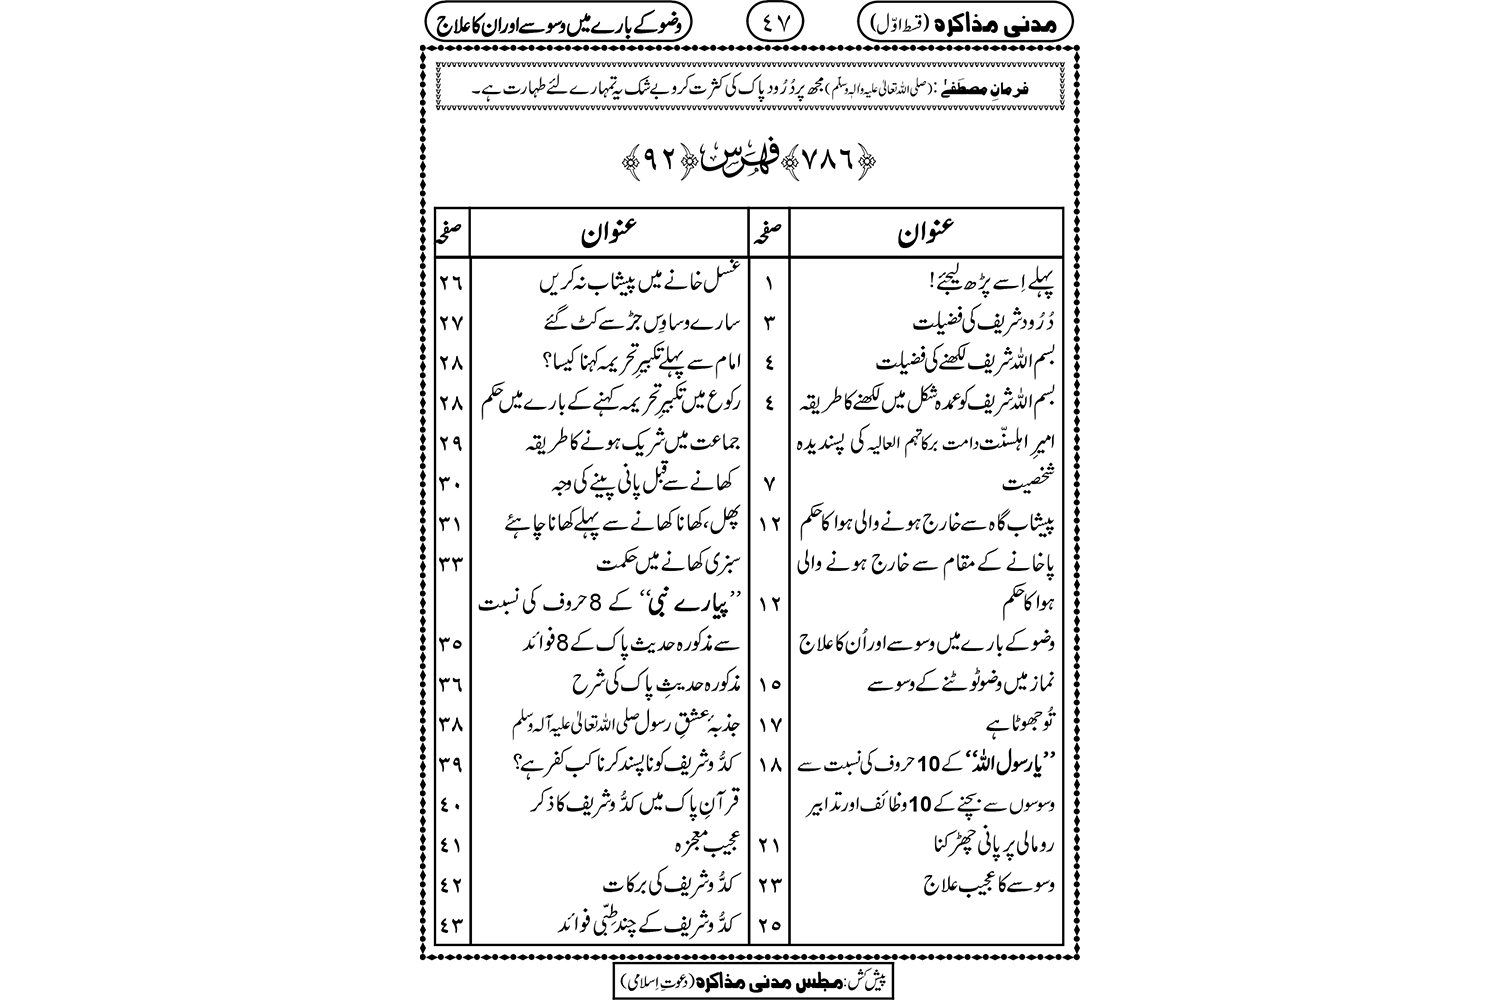 مدنی مذاکره (قسط اوّل) ٤٧ وضو کے بارے میں وسوسے اور ان کا علاج
فرمانِ مصطفےٰ: (صلی اللہ تعالیٰ علیہ واٰلہٖ وسلّم) مجھ پر دُرُود پاک کی کثرت کرو بے شک یہ تمہارے لئے طہارت ہے۔
﴿٧٨٦﴾ فہرس ﴿٩٢﴾
عنوان صفحہ عنوان صفحہ
پہلے اِسے پڑھ لیجئے! ١
دُرُود شریف کی فضیلت ٣
بسم اللہ شریف لکھنے کی فضیلت ٤
بسم اللہ شریف کو عمدہ شکل میں لکھنے کا طریقہ ٤
امیرِ اہلسنّت دامت برکاتہم العالیہ کی پسندیدہ
شخصیت ٧
پیشاب گاہ سے خارج ہونے والی ہوا کا حکم ١٢
پاخانے کے مقام سے خارج ہونے والی
ہوا کا حکم ١٢
وضو کے بارے میں وسوسے اور اُن کا علاج
نماز میں وضو ٹوٹنے کے وسوسے ١٥
تُو جھوٹا ہے ١٧
’’یا رسول اللہ‘‘ کے 10 حروف کی نسبت سے ١٨
وسوسوں سے بچنے کے 10 وظائف اور تدابیر
رومالی پر پانی چھڑکنا ٢١
وسوسے کا عجیب علاج ٢٣
٢٥
غسل خانے میں پیشاب نہ کریں ٢٦
سارے وساوِس جڑ سے کٹ گئے ٢٧
امام سے پہلے تکبیرِ تحریمہ کہنا کیسا؟ ٢٨
رکوع میں تکبیرِ تحریمہ کہنے کے بارے میں حکم ٢٨
جماعت میں شریک ہونے کا طریقہ ٢٩
کھانے سے قبل پانی پینے کی وجہ ٣٠
پھل، کھانا کھانے سے پہلے کھانا چاہئے ٣١
سبزی کھانے میں حکمت ٣٣
’’پیارے نبی‘‘ کے 8 حروف کی نسبت
سے مذکورہ حدیث پاک کے 8 فوائد ٣٥
مذکورہ حدیثِ پاک کی شرح ٣٦
جذبۂ عشقِ رسول صلی اللہ تعالیٰ علیہ آلہ وسلم ٣٨
کدُّ و شریف کو ناپسند کرنا کب کفر ہے؟ ٣٩
قرآنِ پاک میں کدُّ و شریف کا ذکر ٤٠
عجیب معجزہ ٤١
کدُّ و شریف کی برکات ٤٢
کدُّ و شریف کے چند طِبّی فوائد ٤٣
پیش کش: مجلس مدنی مذاکرہ (دعوتِ اِسلامی)